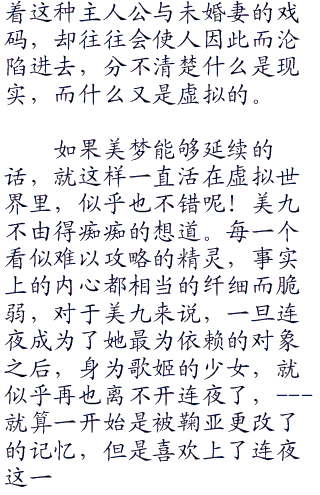 着这种主人公与未婚妻的戏
码，却往往会使人因此而沦
陷进去，分不清楚什么是现
实，而什么又是虚拟的。
如果美梦能够延续的
话，就这样一直活在虚拟世
界里，似乎也不错呢！美九
不由得痴痴的想道。每一个
看似难以攻略的精灵，事实
上的内心都相当的纤细而脆
弱，对于美九来说，一旦连
夜成为了她最为依赖的对象
之后，身为歌姬的少女，就
似乎再也离不开连夜了，---
就算一开始是被鞠亚更改了
的记忆，但是喜欢上了连夜
这一